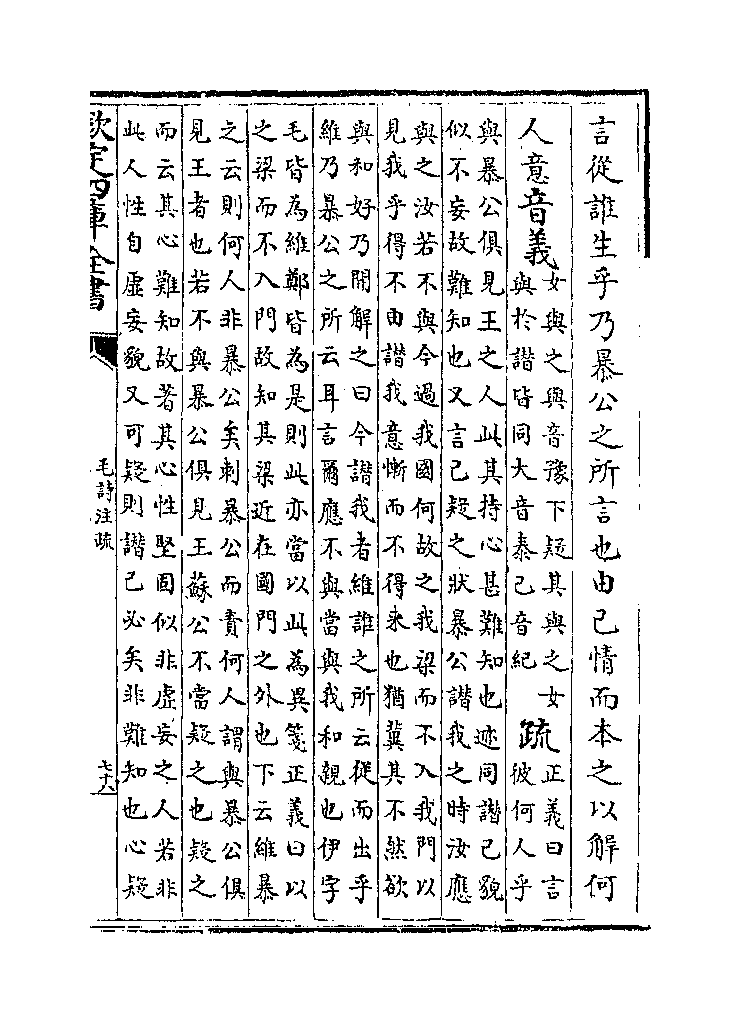 言從誰生乎乃暴公之所言也由己情而本之以解何
人意音義
女與之與音豫下疑其與之女
與於譖皆同大音泰己音紀
疏
正義曰言
彼何人乎
與暴公俱見王之人此其持心甚難知也迹同譖己貌
似不妄故難知也又言己疑之狀暴公譖我之時汝應
與之汝若不與今過我國何故之我梁而不入我門以
見我乎得不由譖我意慚而不得來也猶冀其不然欲
與和好乃開解之曰今譖我者維誰之所云從而出乎
維乃暴公之所云耳言爾應不與當與我和親也伊字
毛皆為維鄭皆為是則此亦當以此為異箋正義曰以
之梁而不入門故知其梁近在國門之外也下云維暴
之云則何人非暴公矣刺暴公而責何人謂與暴公俱
見王者也若不與暴公俱見王蘇公不當疑之也疑之
而云其心難知故著其心性堅固似非虛妄之人若非
此人性自虛妄貌又可疑則譖己必矣非難知也心疑
欽定四庫全書
毛詩注疏
七十八